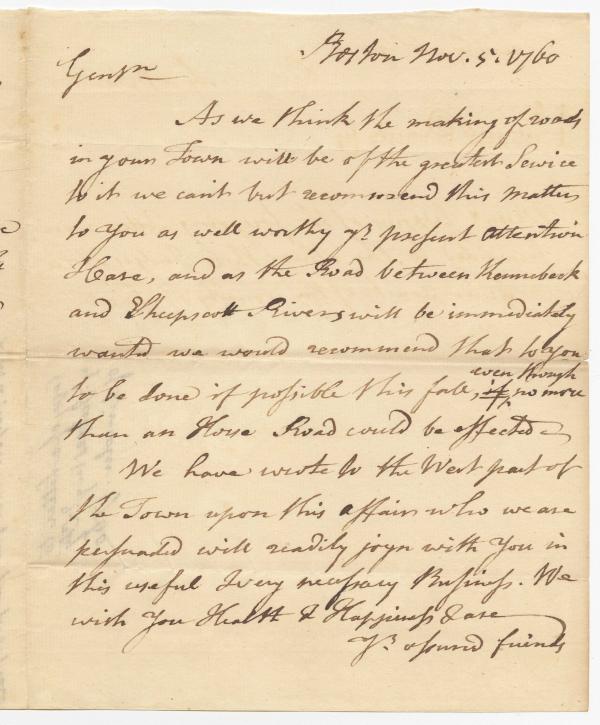 Boston Nov. 5. 1760
Gentn
As we think the making of roads
in your Town will be of the greatest Service
to it we can't but recommend this Matter
to You as well worthy yr. present attention
& Care, and as the Road between Kennebeck
and Sheepscott Rivers will be immediately
wanted we would recommend that to You
to be done if possible this fall, even though if no more
than an Horse Road could be effected
We have wrote to the West part of
the Town upon this affair who we are
persuaded will readily joyn with You in
this useful & very necessary Business. We
wish You Health & Happiness & are
Yr. assured friends